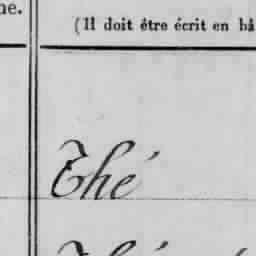 ne.
(Il doit être écrit en bâ
Thé